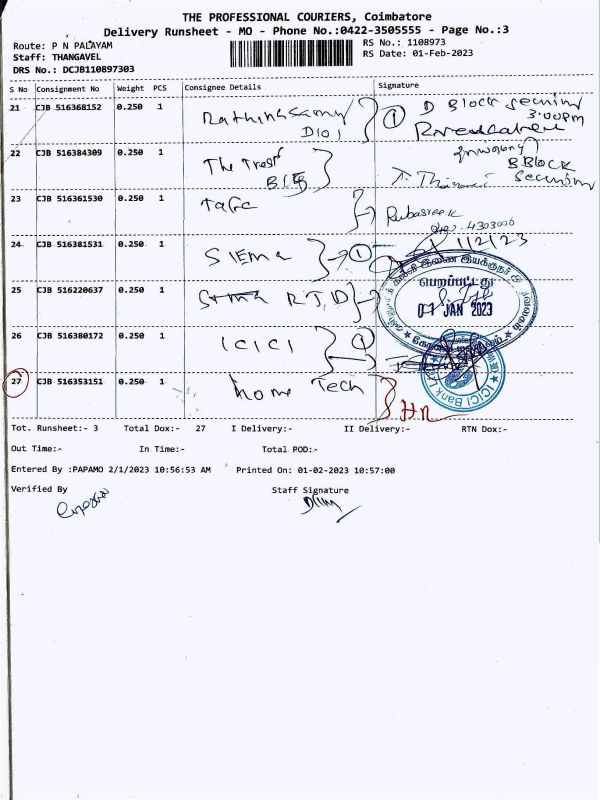 THE PROFESSIONAL COURIERS, Coimbatore
Delivery Runsheet - MO - Phone No.:0422-3505555 - Page No.:3
Route: P N PALAYAM
RS No.: 1108973
Staff: THANGAVEL
RS Date: 01-Feb-2023
DRS No.: DCJB110897303
S No Consignment No Weight PCS Consignee Details Signature
21 CJB 516368152 0.250 1 Rathinasamy D Block Security
D101 1 3.00pm
22 CJB 516384309 0.250 1 The Trest B Block
Security
23 CJB 516361530 0.250 1 Tafe Rubasree K
4303000
24 CJB 516381531 0.250 1 SIEMA 1 1/2/23
25 CJB 516220637 0.250 1 R.T.D
பெறப்பட்டது
01 JAN 2023
26 CJB 516380172 0.250 1 ICICI 1
ICICI Bank
27 CJB 516353151 0.250 1 home Tech
HR
Tot. Runsheet:- 3 Total Dox:- 27 I Delivery:- II Delivery:- RTN Dox:-
Out Time:- In Time:- Total POD:-
Entered By :PAPAMO 2/1/2023 10:56:53 AM Printed On: 01-02-2023 10:57:00
Verified By Staff Signature